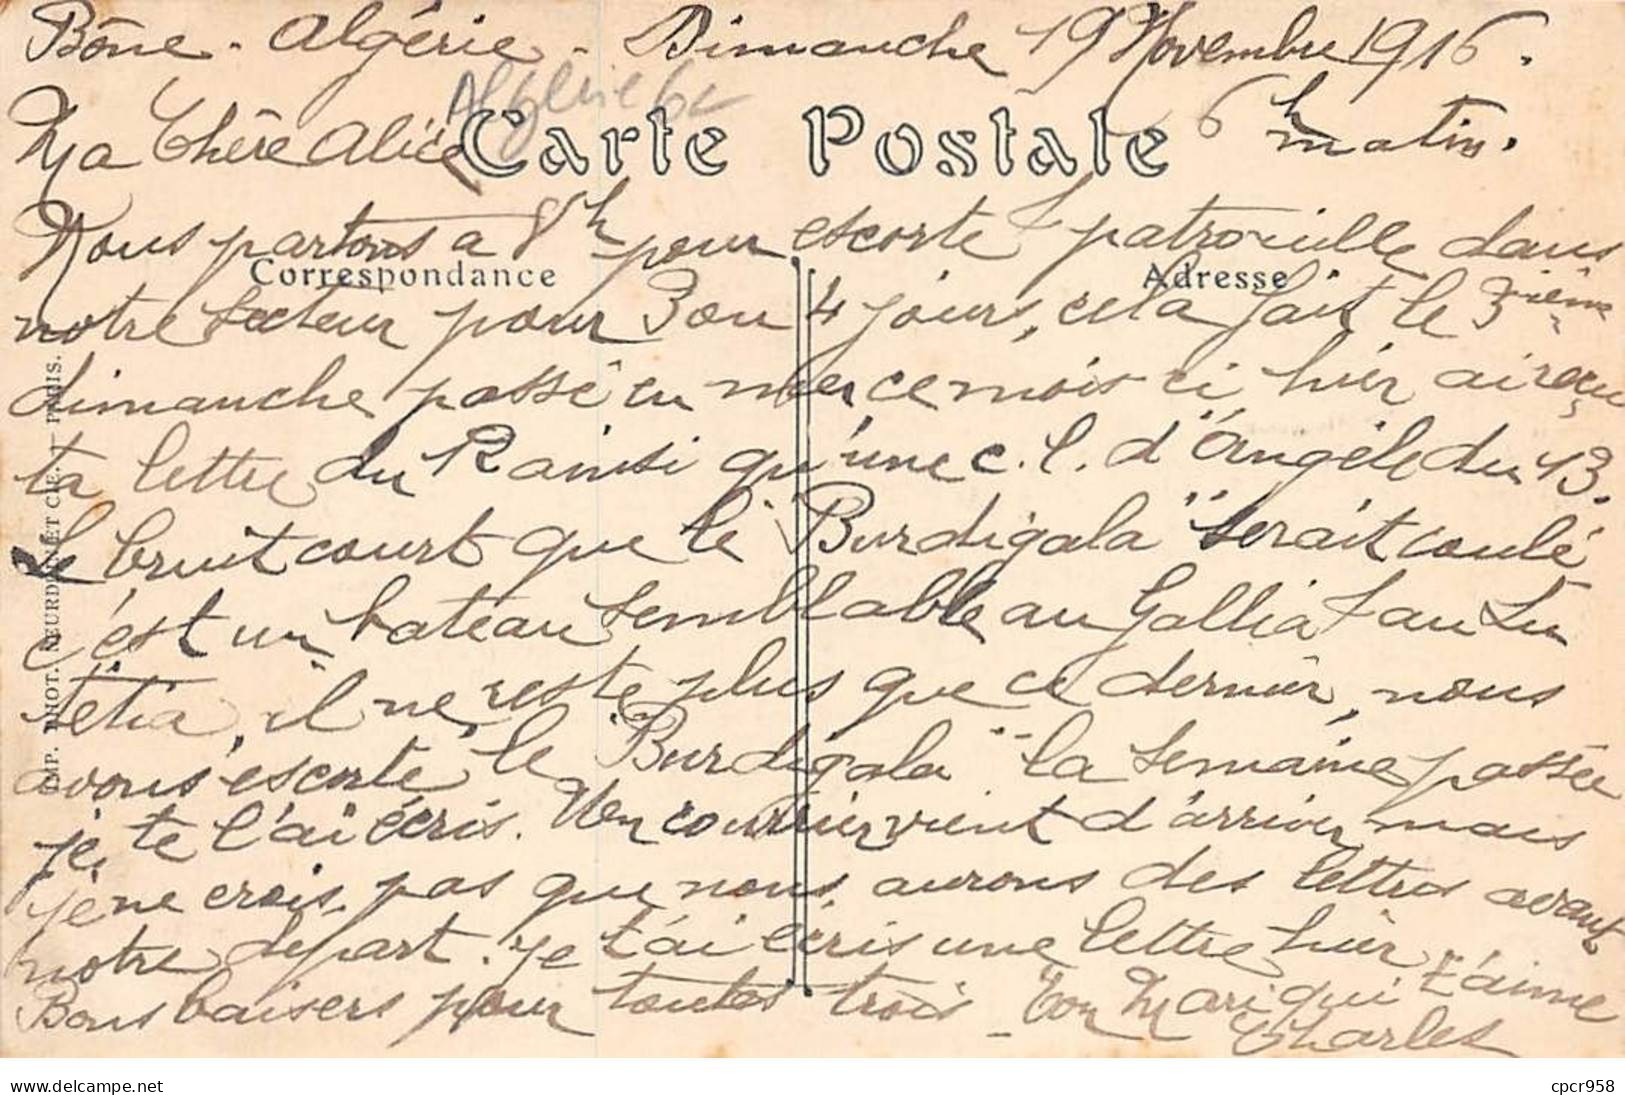 Bône - Algérie - Dimanche 19 Novembre 1916.
Algérie
6h matin.
Ma Chère Alice
Carte Postale
Nous partons a 8h pour escorte & patrouille dans
Correspondance
Adresse
notre secteur pour 3 ou 4 jours, cela fait le 3ième
dimanche passé en mer ce mois ci hier ai reçu
ta lettre du Rainsi qu'une c. l. d'Angèle du 13.
Le bruit court que le "Burdigala" serait coulé
c'est un bateau semblable au Gallia & au Lu
tétia, il ne reste plus que ce dernier, nous
avons escorte le "Burdigala" la semaine passée
je te l'ai écris. Un courrier vient d'arriver mais
je ne crois pas que nous aurons des lettres avant
notre départ. je t'ai écris une lettre hier
Bons baisers pour toutes trois - Ton Mari qui t'aime
Charles
IMP. PHOT. NEURDEIN ET CIE. - PARIS.
cpcr958